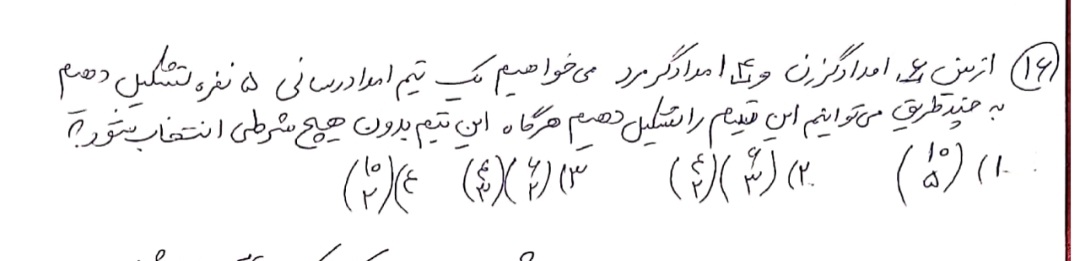 ۱۶) از بین ۶ امدادگر زن و ۴ امدادگر مرد می‌خواهیم یک تیم امدادرسانی ۵ نفره تشکیل دهیم
به چند طریق می‌توانیم این تیم را تشکیل دهیم هرگاه این تیم بدون هیچ شرطی انتخاب شود؟
۱) (۱۰ ۵) ۲) (۶ ۳)(۴ ۲) ۳) (۶ ۲)(۴ ۳) ۴) (۱۰ ۲)